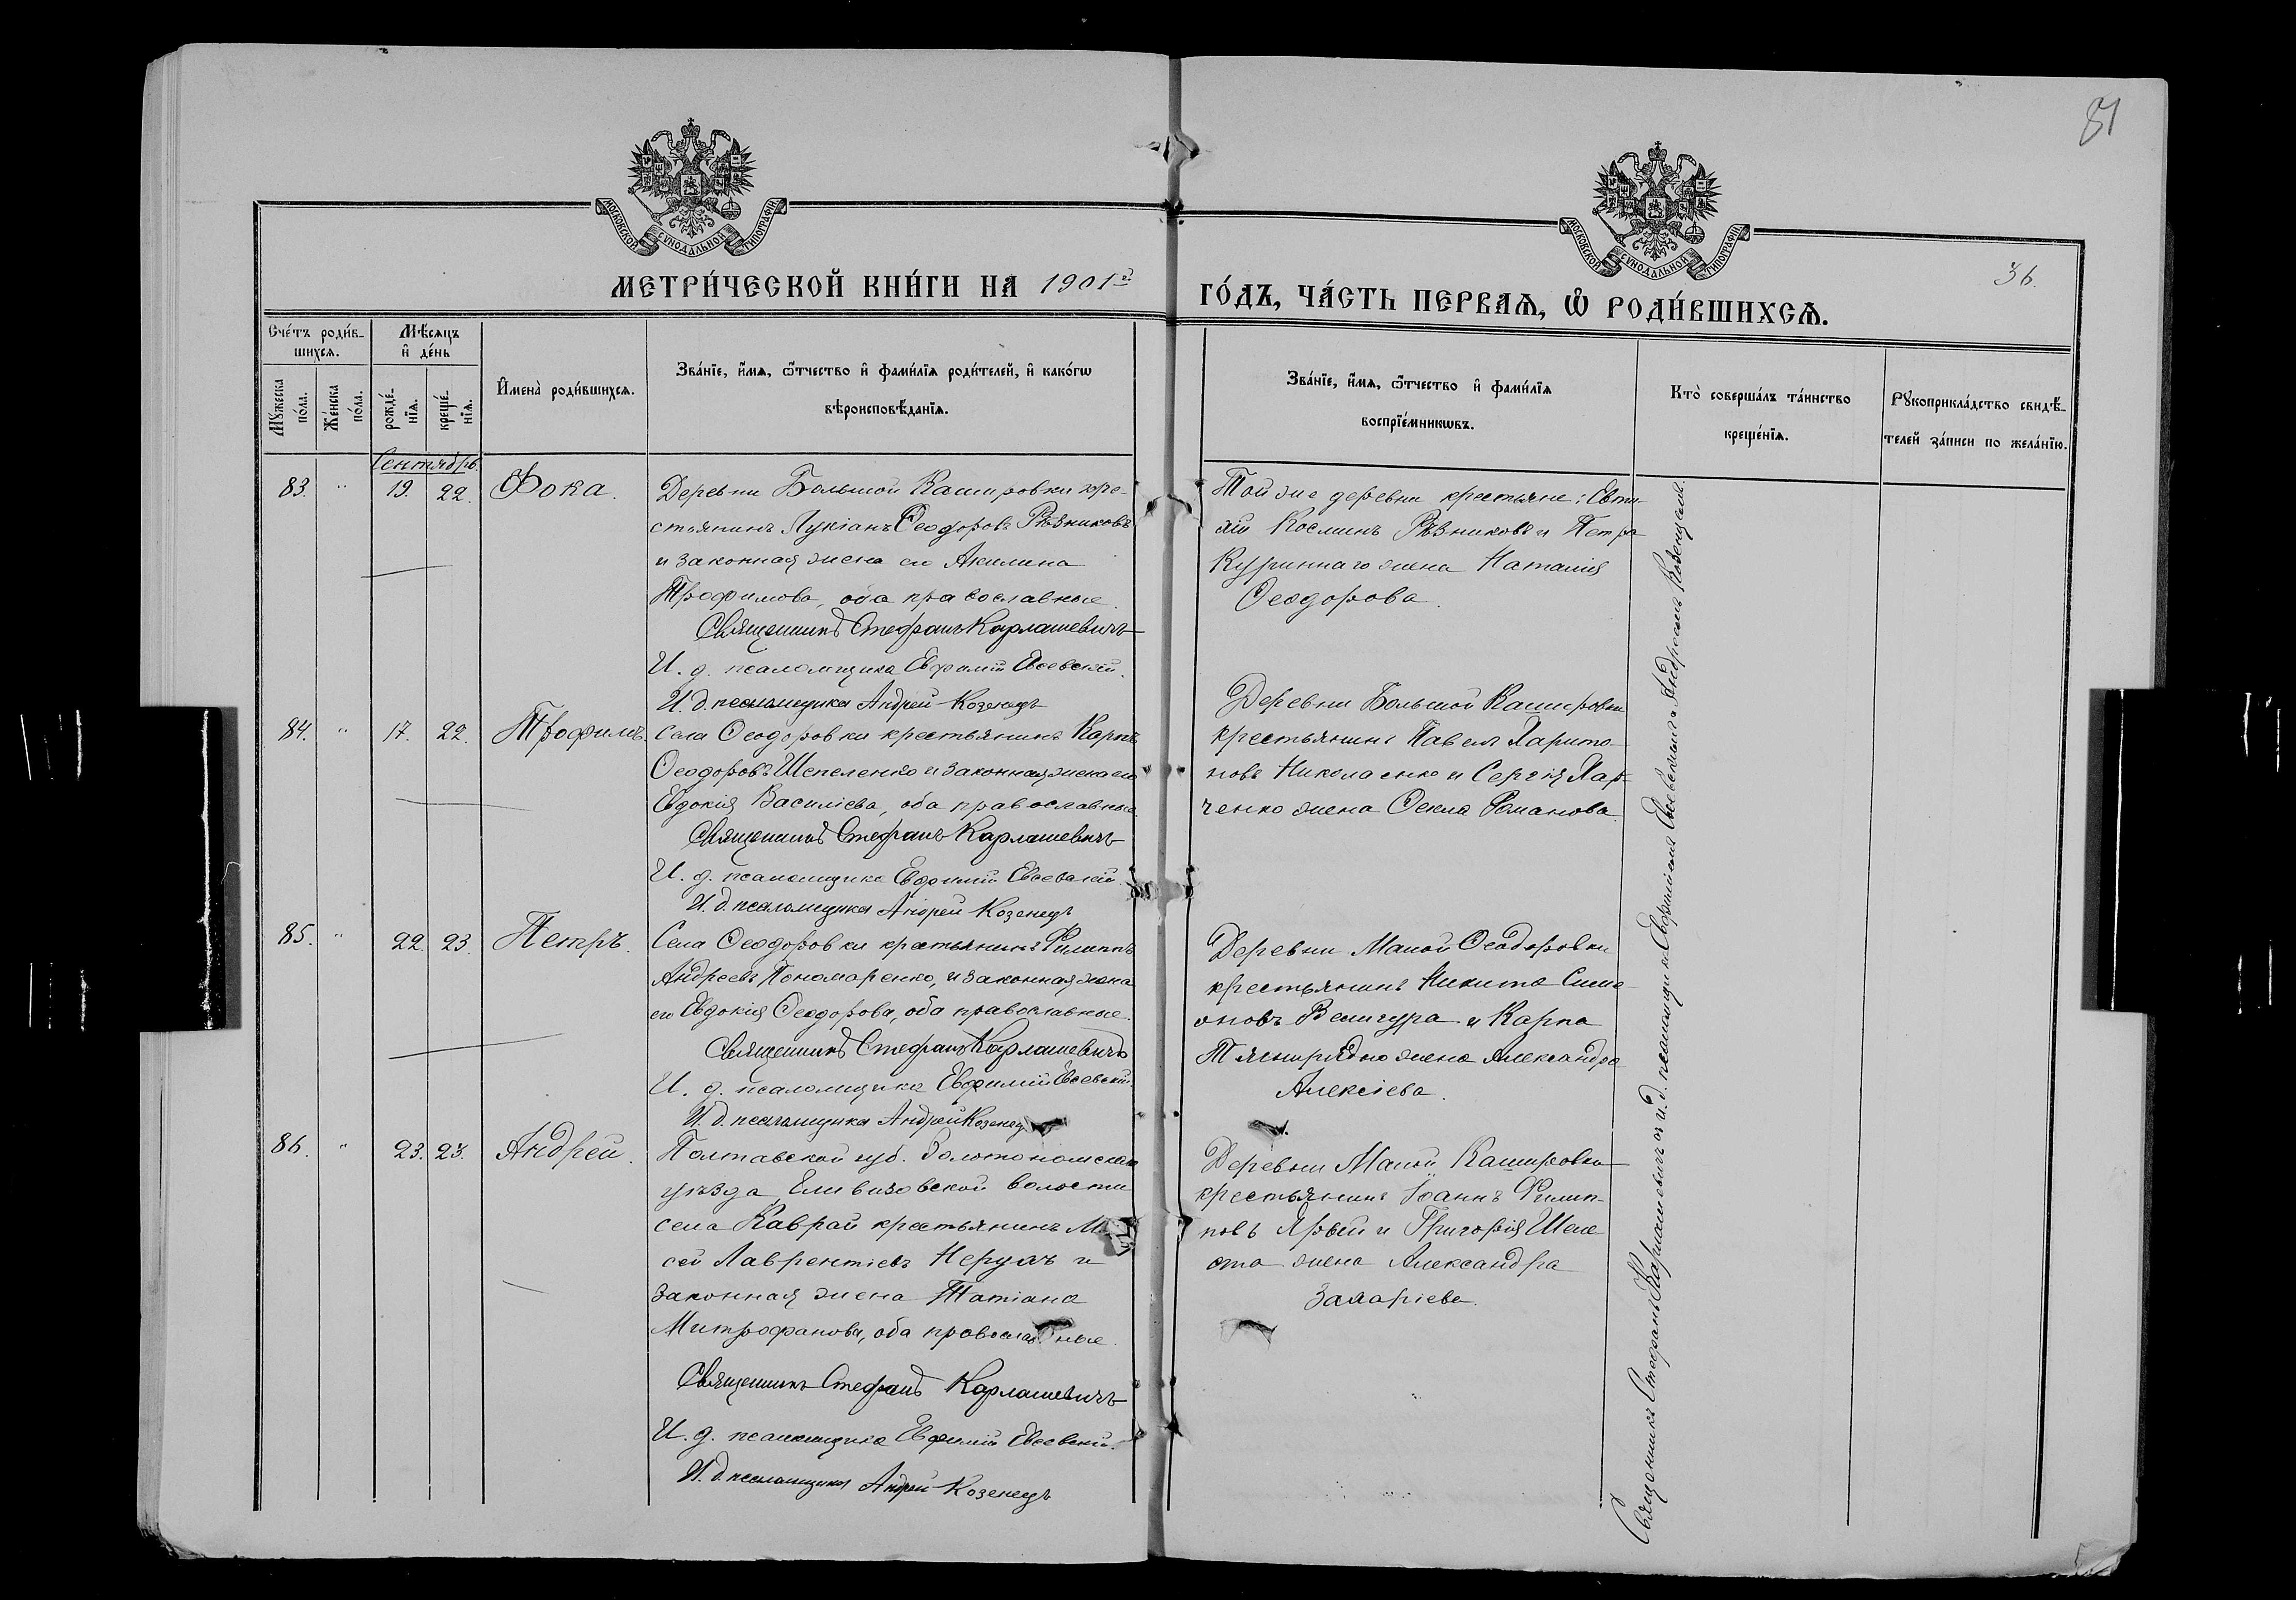 81
МОСКОВСКОЙ СѴНОДАЛЬНОЙ ТИПОГРАФІИ
МОСКОВСКОЙ СѴНОДАЛЬНОЙ ТИПОГРАФІИ
36.
МЕТРИ́ЧЕСКОЙ КНИ́ГИ НА 1901й ГО́ДЪ, ЧА́СТЬ ПЕРВАѦ, Ѡ҆ РОДИ́ВШИХСѦ.
Сче́тъ роди́в-
шихсѧ.
Мѣ́сѧцъ
и҆ де́нь
Мꙋ́жеска
по́ла.
Же́нска
по́ла.
рожде́-
нїѧ.
креще́-
нїѧ.
И҆мена̀ роди́вшихсѧ.
Зва́нїе, и҆́мѧ, ѻ҆́тчество и҆ фами́лїѧ роди́телей, и҆ како́гѡ
вѣроисповѣ́данїѧ.
Зва́нїе, и҆́мѧ, ѻ҆́тчество и҆ фами́лїѧ
воспрїе́мникѡвъ.
Кто̀ соверша́лъ та́инство
креще́нїѧ.
Рꙋкоприкла́дство свидѣ́-
телей за́писи по жела́нїю.
Сентябрь.
83. " 19. 22. Фока.
Деревни Большой Кашировки кре-
стьянинъ Лукіанъ Ѳеодоровъ Рѣзниковъ
и законная жена его Акилина
Трофимова, оба православные.
Священникъ Стефанъ Карлашевичъ
И. д. псаломщика Евфимій Евсевскій.
И. д. псаломщика Андрей Козенецъ
Той же деревни крестьяне: Евти-
хій Косминъ Рѣзниковъ и Петра
Куриннаго жена Наталія
Ѳеодорова.
84. " 17. 22. Трофимъ.
Села Ѳеодоровки крестьянинъ Карпъ
Ѳеодоровъ Шепеленко и законная жена его
Евдокія Василіева, оба православные.
Священникъ Стефанъ Карлашевичъ
И. д. псаломщика Евфимій Евсевскій.
И. д. псаломщика Андрей Козенецъ
Деревни Большой Кашировки
крестьянинъ Павелъ Харито-
новъ Николаенко и Сергія Хар-
ченко жена Ѳекла Романова.
85. " 22. 23. Петръ.
Села Ѳеодоровки крестьянинъ Филиппъ
Андреевъ Пономаренко, и законная жена
его Евдокія Ѳеодорова, оба православные.
Священникъ Стефанъ Карлашевичъ
И. д. псаломщика Евфимій Евсевскій.
И. д. псаломщика Андрей Козенецъ
Деревни Малой Ѳеодоровки
крестьянинъ Никита Симе-
оновъ Величура и Карпа
жена Александра
Алексіева.
86. " 23. 23. Андрей.
Полтавской губ. Золотоношскаго
уѣзда, Еливизовской волости
села Каврай крестьянинъ
сей Лаврентіевъ Неруахъ и
законная жена Татіана
Митрофанова, оба православные.
Священникъ Стефанъ Карлашевичъ
И. д. псаломщика Евфимій Евсевскій.
И. д. псаломщика Андрей Козенецъ
Деревни Малой Кашировки
крестьянинъ Іоаннъ Филип-
повъ и Григорія Шеле-
ста жена Александра
Захаріева.
Священникъ Стефанъ Карлашевичъ съ и. д. псаломщика Евфиміемъ Евсевскимъ и Андреемъ Козенцемъ.